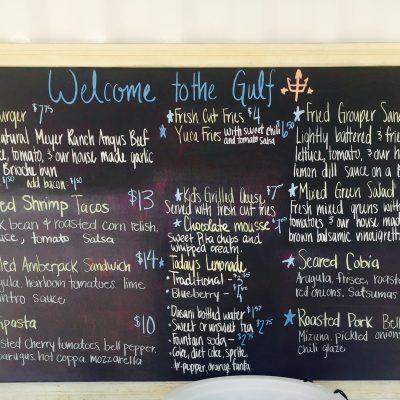 Welcome to the Gulf
urger $7.75
atural Meyer Ranch Angus Beef
ce, tomato, & our house made garlic
Brioche bun
add bacon $1.50
ed Shrimp Tacos $13
k bean & roasted corn relish,
uce, tomato salsa
led Amberjack Sandwich $14
gula, heirloom tomatoes lime
ntro sauce
npasta $10
asted Cherry tomatoes, bell pepper,
paragus, hot coppa mozzarella
Fresh Cut Fries $4
Yuca Fries with sweet chili and tomato salsa $6.50
Kids Grilled Cheese $7
Served with fresh cut fries
Chocolate mousse
sweet pita chips and
whipped cream.
Today's Lemonade
Traditional
Blueberry - $4
Dasani bottled water
Sweet or unsweet tea $2.75
Fountain soda - $2.75
Coke, diet coke, sprite
dr. pepper, orange fanta
Fried Grouper San
Lightly battered & fri
lettuce, tomato, & our ho
lemon dill sauce on a B
Mixed Green Salad
Fresh mixed greens with
tomatoes & our house mad
brown balsamic vinaigrett
Seared Cobia
Arugula, frisee, roast
red onions, Satsumas
Roasted Pork Bel
Mizuna, pickled onions
chili glaze